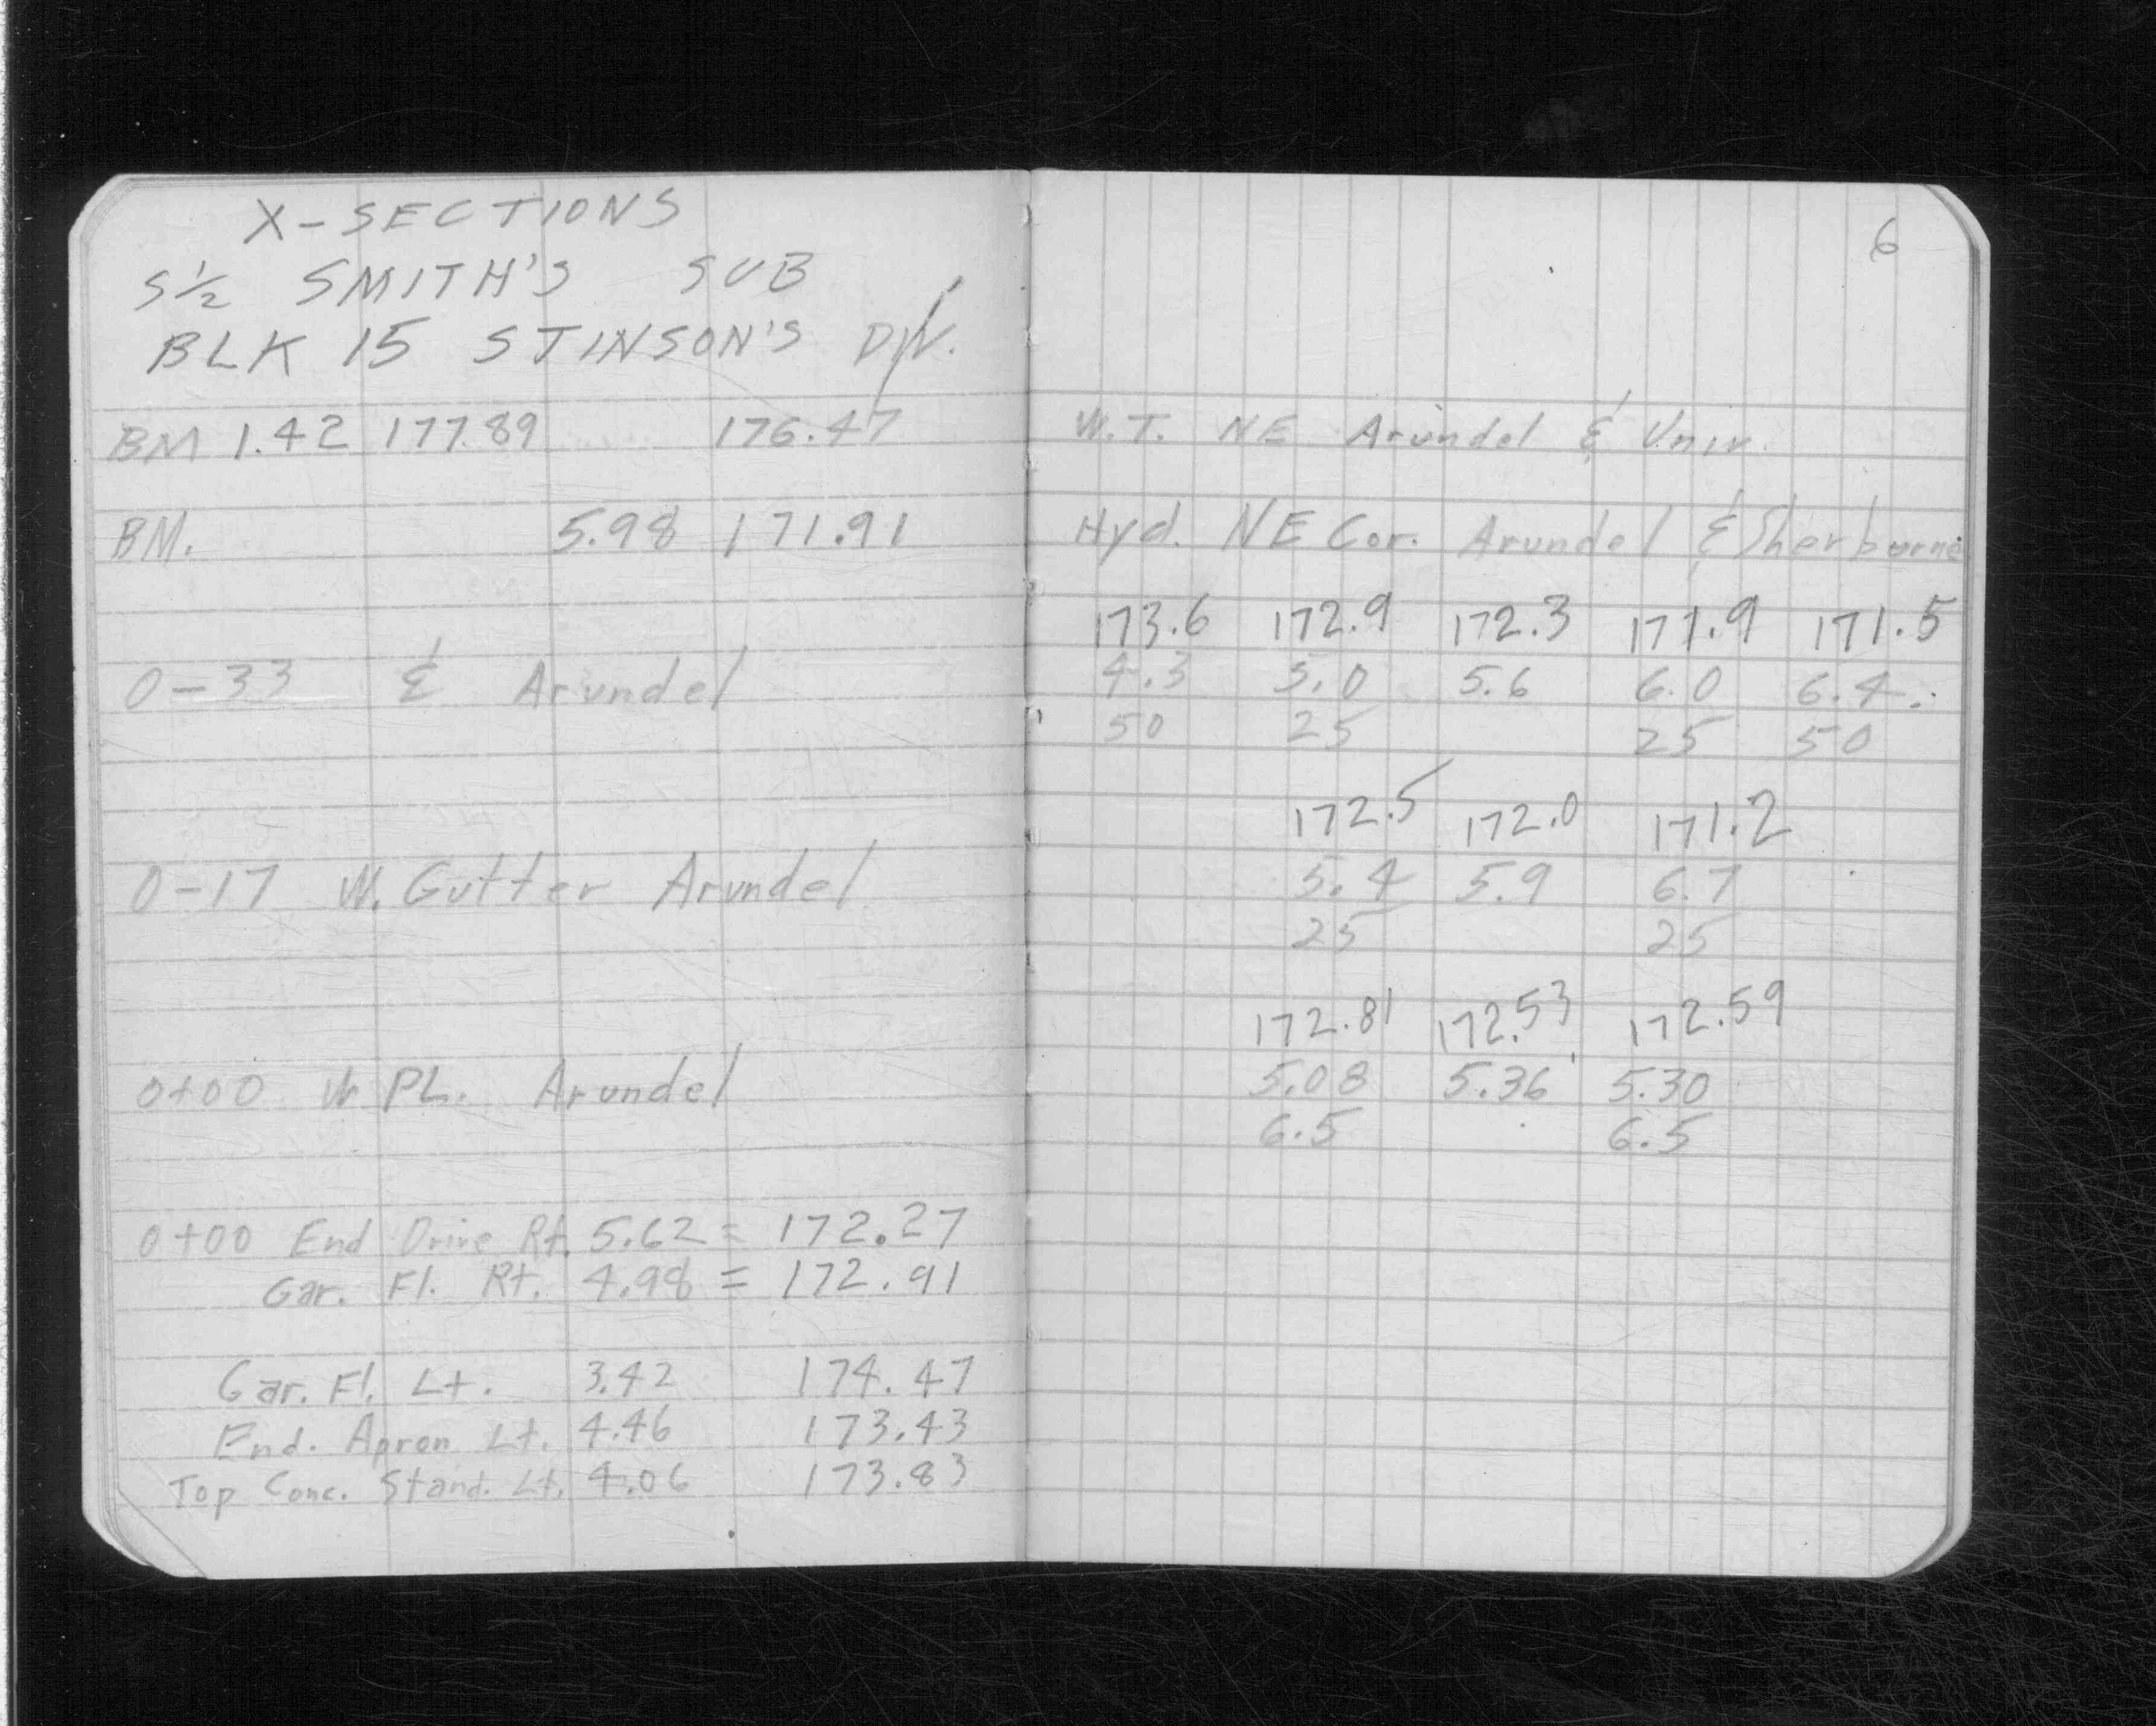 X-SECTIONS
S½ SMITH'S SUB
BLK 15 STINSON'S DIV.
BM 1.42 177.89 176.47
BM. 5.98 171.91
0-33 & Arundel
0-17 W. Gutter Arundel
0+00 W PL. Arundel
0+00 End Drive Rt. 5.62 = 172.27
Gar. Fl. Rt. 4.98 = 172.91
Gar. Fl. Lt. 3.42 174.47
End. Apron Lt. 4.46 173.43
Top Conc. Stand. Lt. 4.06 173.83
6
W.T. NE Arundel & Univ.
Hyd. NE Cor. Arundel & Sherburne
173.6 172.9 172.3 171.9 171.5
4.3 5.0 5.6 6.0 6.4
50 25 25 50
172.5 172.0 171.2
5.4 5.9 6.7
25 25
172.81 172.53 172.59
5.08 5.36 5.30
6.5 6.5